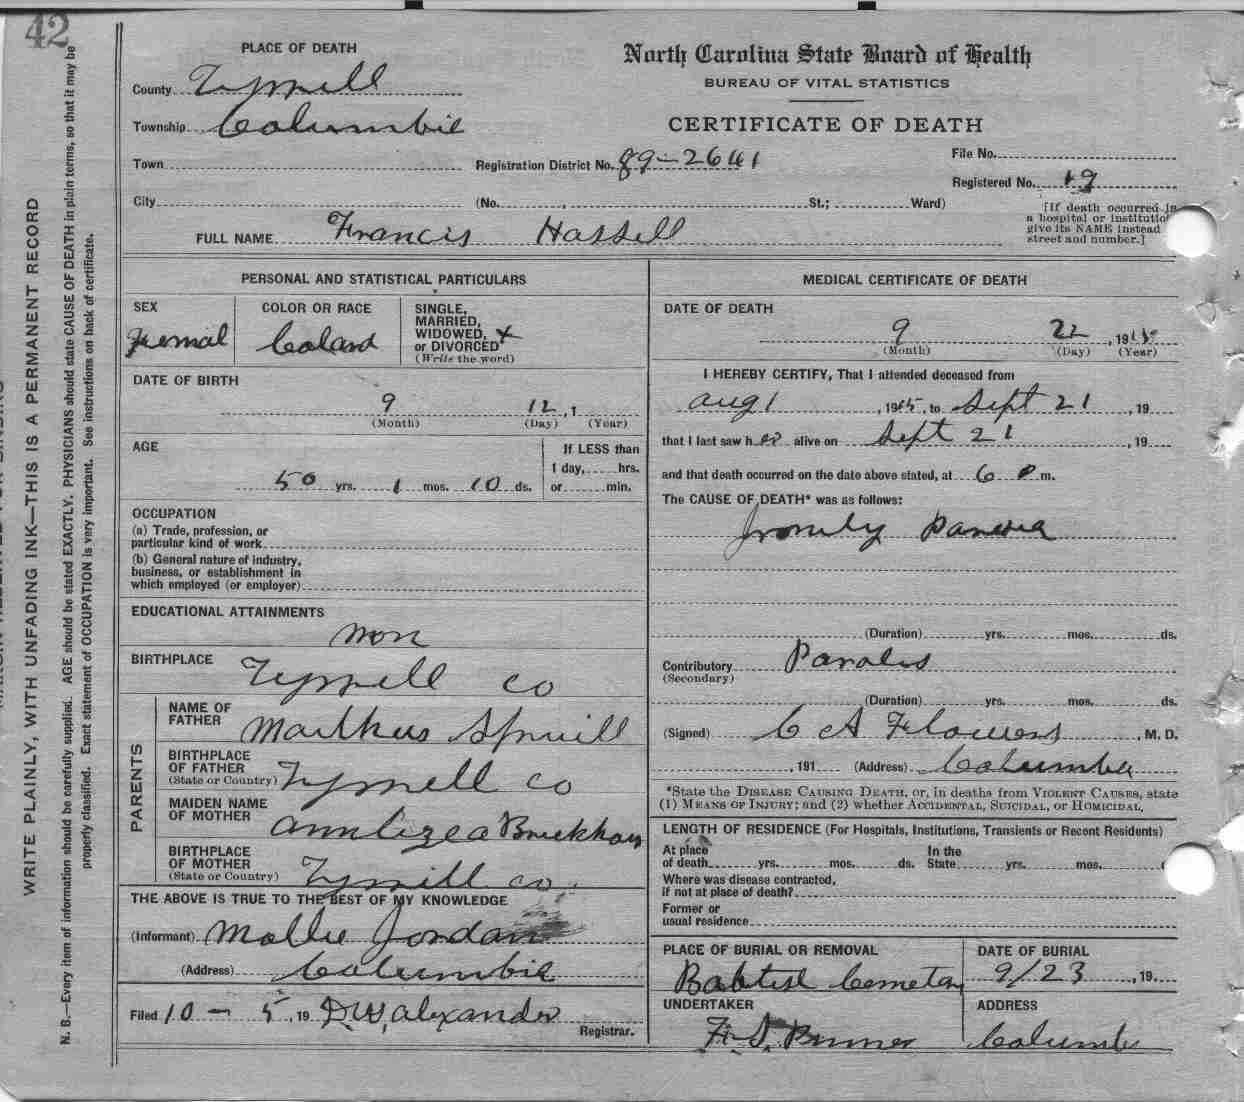 42
PLACE OF DEATH
County Tyrrell
Township Columbia
Town
City
North Carolina State Board of Health
BUREAU OF VITAL STATISTICS
CERTIFICATE OF DEATH
Registration District No. 89-2641
File No.
Registered No. 19
(No. , St.; Ward)
[If death occurred in
a hospital or institution
give its NAME instead
street and number.]
FULL NAME Francis Hassell
PERSONAL AND STATISTICAL PARTICULARS
SEX
Femal
COLOR OR RACE
Colard
SINGLE,
MARRIED,
WIDOWED, x
or DIVORCED
(Write the word)
DATE OF BIRTH
9 12, 1
(Month) (Day) (Year)
AGE
50 yrs. 1 mos. 10 ds.
If LESS than
1 day, hrs.
or min.
OCCUPATION
(a) Trade, profession, or
particular kind of work
(b) General nature of industry,
business, or establishment in
which employed (or employer)
EDUCATIONAL ATTAINMENTS
non
BIRTHPLACE Tyrrell co
PARENTS
NAME OF
FATHER Markus Spruill
BIRTHPLACE
OF FATHER
(State or Country) Tyrrell co
MAIDEN NAME
OF MOTHER
BIRTHPLACE
OF MOTHER
(State or Country) Tyrrell co.
THE ABOVE IS TRUE TO THE BEST OF MY KNOWLEDGE
(Informant) Mollie Jordan
(Address) Columbia
Filed 10 - 5, 19 DW Alexander
Registrar.
MEDICAL CERTIFICATE OF DEATH
DATE OF DEATH
9 22, 1915
(Month) (Day) (Year)
I HEREBY CERTIFY, That I attended deceased from
aug 1, 1915, to Sept 21, 19
that I last saw her alive on Sept 21, 19
and that death occurred on the date above stated, at 6 P m.
The CAUSE OF DEATH* was as follows:
(Duration) yrs. mos. ds.
Contributory
(Secondary)
(Duration) yrs. mos. ds.
(Signed) C A Flowers, M. D.
, 191 (Address) Columbia
*State the DISEASE CAUSING DEATH, or, in deaths from VIOLENT CAUSES, state
(1) MEANS OF INJURY; and (2) whether ACCIDENTAL, SUICIDAL, or HOMICIDAL.
LENGTH OF RESIDENCE (For Hospitals, Institutions, Transients or Recent Residents)
At place In the
of death yrs. mos. ds. State yrs. mos.
Where was disease contracted,
if not at place of death?
Former or
usual residence
PLACE OF BURIAL OR REMOVAL
Babtist Cemetary
DATE OF BURIAL
9/23, 19
UNDERTAKER
ADDRESS
Columbi
WRITE PLAINLY, WITH UNFADING INK—THIS IS A PERMANENT RECORD
N. B.—Every item of information should be carefully supplied. AGE should be stated EXACTLY. PHYSICIANS should state CAUSE OF DEATH in plain terms, so that it may be
properly classified. Exact statement of OCCUPATION is very important. See instructions on back of certificate.